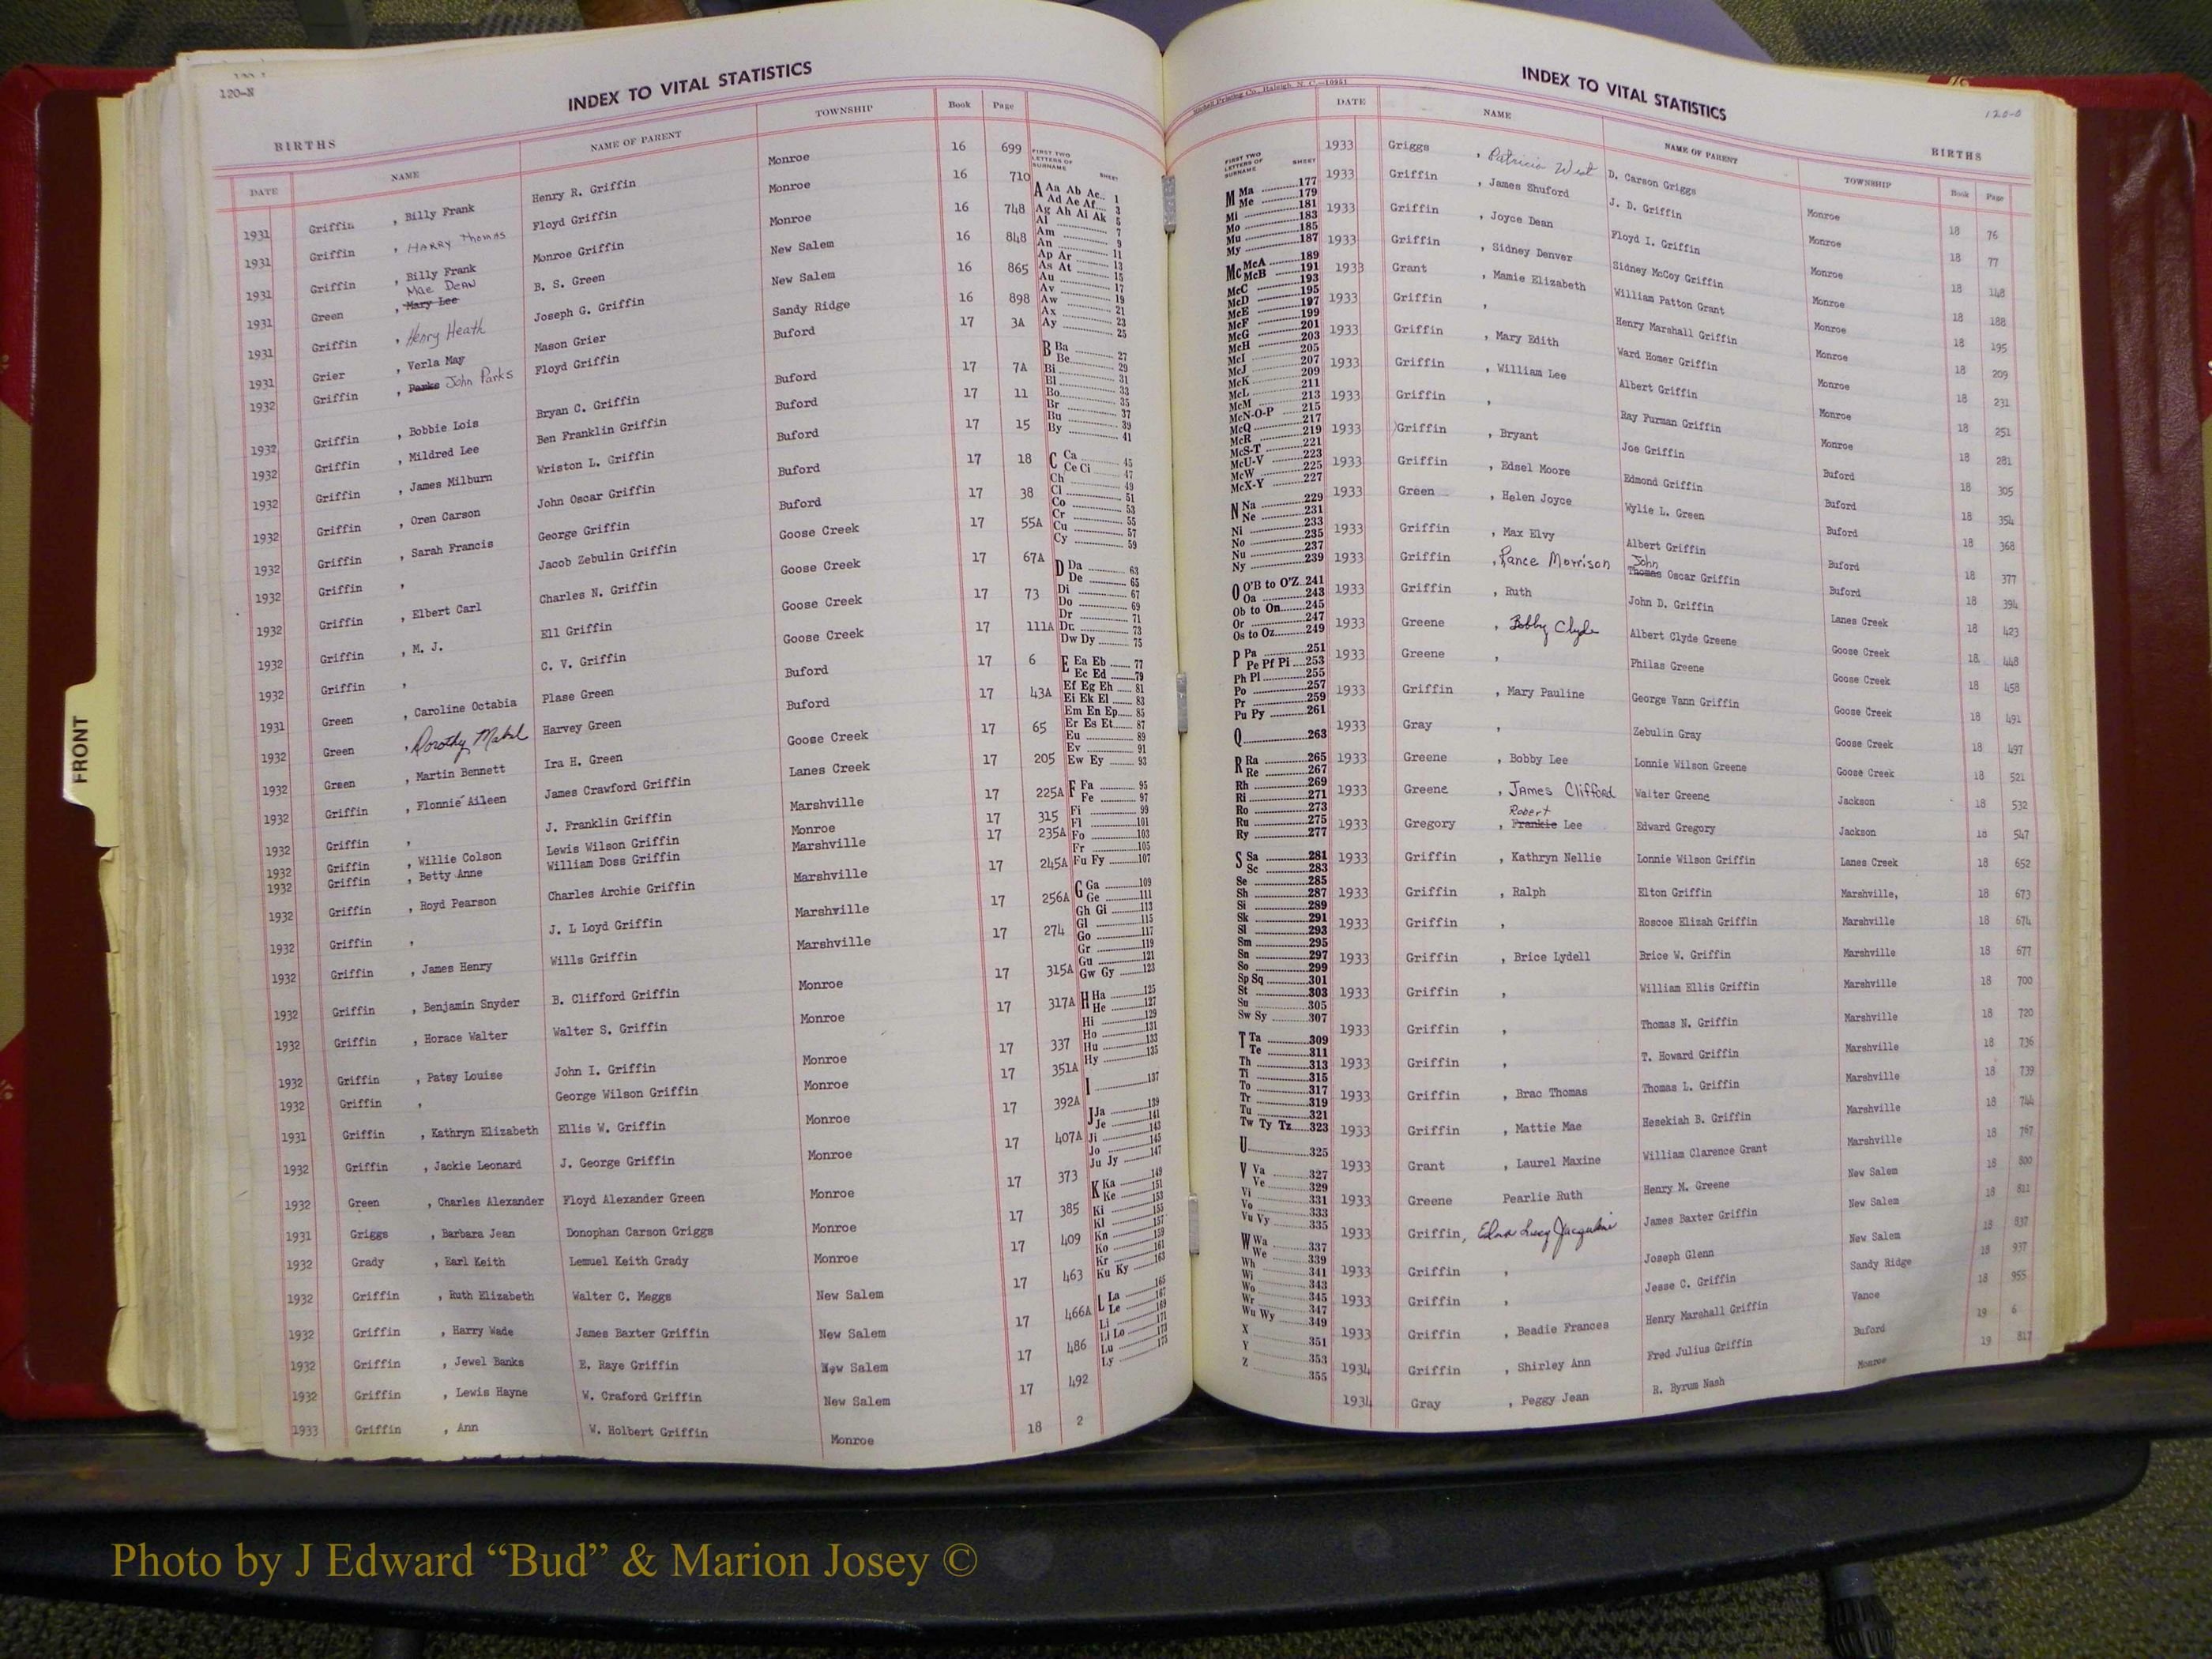 120-N
INDEX TO VITAL STATISTICS
BIRTHS
DATE NAME NAME OF PARENT TOWNSHIP Book Page
1931 Griffin , Billy Frank Henry R. Griffin Monroe 16 699
1931 Griffin , HARRY Thomas Floyd Griffin Monroe 16 710
1931 Griffin , Billy Frank Monroe Griffin Monroe 16 748
1931 Green , Mae Dean Mary Lee B. S. Green New Salem 16 848
1931 Griffin , Henry Heath Joseph G. Griffin New Salem 16 865
1931 Grier , Verla May Mason Grier Sandy Ridge 16 898
1932 Griffin , Parks John Parks Floyd Griffin Buford 17 3A
1932 Griffin , Bobbie Lois Bryan C. Griffin Buford 17 7A
1932 Griffin , Mildred Lee Ben Franklin Griffin Buford 17 11
1932 Griffin , James Milburn Wriston L. Griffin Buford 17 15
1932 Griffin , Oren Carson John Oscar Griffin Buford 17 18
1932 Griffin , Sarah Francis George Griffin Buford 17 38
1932 Griffin , Jacob Zebulin Griffin Goose Creek 17 55A
1932 Griffin , Elbert Carl Charles N. Griffin Goose Creek 17 67A
1932 Griffin , M. J. Ell Griffin Goose Creek 17 73
1932 Griffin , C. V. Griffin Goose Creek 17 111A
1931 Green , Caroline Octabia Plase Green Buford 17 6
1932 Green , Dorothy Mabel Harvey Green Buford 17 43A
1932 Green , Martin Bennett Ira H. Green Goose Creek 17 65
1932 Griffin , Flonnie Aileen James Crawford Griffin Lanes Creek 17 205
1932 Griffin , J. Franklin Griffin Marshville 17 225A
1932 Griffin , Willie Colson Lewis Wilson Griffin Monroe 17 315
1932 Griffin , Betty Anne William Doss Griffin Marshville 17 235A
1932 Griffin , Royd Pearson Charles Archie Griffin Marshville 17 245A
1932 Griffin , J. L Loyd Griffin Marshville 17 256A
1932 Griffin , James Henry Wills Griffin Marshville 17 274
1932 Griffin , Benjamin Snyder B. Clifford Griffin Monroe 17 315A
1932 Griffin , Horace Walter Walter S. Griffin Monroe 17 317A
1932 Griffin , Patsy Louise John I. Griffin Monroe 17 337
1932 Griffin , George Wilson Griffin Monroe 17 351A
1931 Griffin , Kathryn Elizabeth Ellis W. Griffin Monroe 17 392A
1932 Griffin , Jackie Leonard J. George Griffin Monroe 17 407A
1932 Green , Charles Alexander Floyd Alexander Green Monroe 17 373
1931 Griggs , Barbara Jean Donophan Carson Griggs Monroe 17 385
1932 Grady , Earl Keith Lemuel Keith Grady Monroe 17 409
1932 Griffin , Ruth Elizabeth Walter C. Meggs New Salem 17 463
1932 Griffin , Harry Wade James Baxter Griffin New Salem 17 466A
1932 Griffin , Jewel Banks E. Raye Griffin New Salem 17 486
1932 Griffin , Lewis Hayne W. Craford Griffin New Salem 17 492
1933 Griffin , Ann W. Holbert Griffin Monroe 18 2
FIRST TWO LETTERS OF SURNAME SHEET
A Aa Ab Ac 1
Ad Ae Af 3
Ag Ah Ai Ak 5
Al 7
Am 9
An 11
Ap Ar 13
As At 15
Au 17
Av 19
Aw 21
Ax 23
Ay 25
B Ba 27
Be 29
Bi 31
Bl 33
Bo 35
Br 37
Bu 39
By 41
C Ca 45
Ce Ci 47
Ch 49
Cl 51
Co 53
Cr 55
Cu 57
Cy 59
D Da 63
De 65
Di 67
Do 69
Dr 71
Du 73
Dw Dy 75
E Ea Eb 77
Ec Ed 79
Ef Eg Eh 81
Ei Ek El 83
Em En Ep 85
Er Es Et 87
Eu 89
Ev 91
Ew Ey 93
F Fa 95
Fe 97
Fi 99
Fl 101
Fo 103
Fr 105
Fu Fy 107
G Ga 109
Ge 111
Gh Gi 113
Gl 115
Go 117
Gr 119
Gu 121
Gw Gy 123
H Ha 125
He 127
Hi 129
Ho 131
Hu 133
Hy 135
I 137
J Ja 139
Je 141
Ji 143
Jo 145
Ju Jy 147
K Ka 149
Ke 151
Ki 153
Kl 155
Kn 157
Ko 159
Kr 161
Ku Ky 163
L La 165
Le 167
Li 169
Ll Lo 171
Lu 173
Ly 175
FRONT
INDEX TO VITAL STATISTICS
120-O
BIRTHS
DATE NAME NAME OF PARENT TOWNSHIP Book Page
FIRST TWO LETTERS OF SURNAME SHEET
M Ma 177
Me 179
Mi 181
Mo 183
Mu 185
My 187
Mc McA 189
McB 191
McC 193
McD 195
McE 197
McF 199
McG 201
McH 203
McI 205
McJ 207
McK 209
McL 211
McM 213
McN-O-P 215
McQ 217
McR 219
McS-T 221
McU-V 223
McW 225
McX-Y 227
N Na 229
Ne 231
Ni 233
No 235
Nu 237
Ny 239
O O'B to O'Z 241
Oa 243
Ob to On 245
Or 247
Os to Oz 249
P Pa 251
Pe Pf Pi 253
Ph Pl 255
Po 257
Pr 259
Pu Py 261
Q 263
R Ra 265
Re 267
Rh 269
Ri 271
Ro 273
Ru 275
Ry 277
S Sa 281
Sc 283
Se 285
Sh 287
Si 289
Sk 291
Sl 293
Sm 295
Sn 297
So 299
Sp Sq 301
St 303
Su 305
Sw Sy 307
T Ta 309
Te 311
Th 313
Ti 315
To 317
Tr 319
Tu 321
Tw Ty Tz 323
U 325
V Va 327
Ve 329
Vi 331
Vo 333
Vu Vy 335
W Wa 337
We 339
Wh 341
Wi 343
Wo 345
Wr 347
Wu Wy 349
X 351
Y 353
Z 355
1933 Griggs , Patricia West D. Carson Griggs Monroe 18 76
1933 Griffin , James Shuford J. D. Griffin Monroe 18 77
1933 Griffin , Joyce Dean Floyd I. Griffin Monroe 18 148
1933 Griffin , Sidney Denver Sidney McCoy Griffin Monroe 18 188
1933 Grant , Mamie Elizabeth William Patton Grant Monroe 18 195
1933 Griffin , Henry Marshall Griffin Monroe 18 209
1933 Griffin , Mary Edith Ward Homer Griffin Monroe 18 231
1933 Griffin , William Lee Albert Griffin Monroe 18 251
1933 Griffin , Ray Furman Griffin Monroe 18 281
1933 Griffin , Bryant Joe Griffin Buford 18 305
1933 Griffin , Edsel Moore Edmond Griffin Buford 18 354
1933 Green , Helen Joyce Wylie L. Green Buford 18 368
1933 Griffin , Max Elvy Albert Griffin Buford 18 377
1933 Griffin , Rance Morrison John Thomas Oscar Griffin Buford 18 394
1933 Griffin , Ruth John D. Griffin Lanes Creek 18 423
1933 Greene , Bobby Clyde Albert Clyde Greene Goose Creek 18 448
1933 Greene , Philas Greene Goose Creek 18 458
1933 Griffin , Mary Pauline George Vann Griffin Goose Creek 18 491
1933 Gray , Zebulin Gray Goose Creek 18 497
1933 Greene , Bobby Lee Lonnie Wilson Greene Goose Creek 18 521
1933 Greene , James Clifford Walter Greene Jackson 18 532
1933 Gregory , Robert Frankie Lee Edward Gregory Jackson 18 547
1933 Griffin , Kathryn Nellie Lonnie Wilson Griffin Lanes Creek 18 652
1933 Griffin , Ralph Elton Griffin Marshville, 18 673
1933 Griffin , Roscoe Elizah Griffin Marshville 18 674
1933 Griffin , Brice Lydell Brice W. Griffin Marshville 18 677
1933 Griffin , William Ellis Griffin Marshville 18 700
1933 Griffin , Thomas N. Griffin Marshville 18 720
1933 Griffin , T. Howard Griffin Marshville 18 736
1933 Griffin , Brac Thomas Thomas L. Griffin Marshville 18 739
1933 Griffin , Mattie Mae Hesekiah B. Griffin Marshville 18 744
1933 Grant , Laurel Maxine William Clarence Grant Marshville 18 767
1933 Greene Pearlie Ruth Henry M. Greene New Salem 18 800
1933 Griffin, Edna Lucy Jacqueline James Baxter Griffin New Salem 18 811
1933 Griffin , Joseph Glenn New Salem 18 837
1933 Griffin , Jesse C. Griffin Sandy Ridge 18 937
1933 Griffin , Beadie Frances Henry Marshall Griffin Vance 18 955
1934 Griffin , Shirley Ann Fred Julius Griffin Buford 19 6
1934 Gray , Peggy Jean R. Byrum Nash Monroe 19 817
Photo by J Edward “Bud” & Marion Josey ©